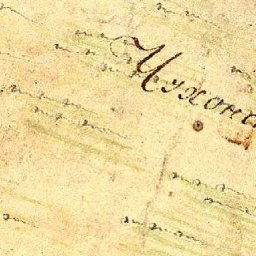 Чухона